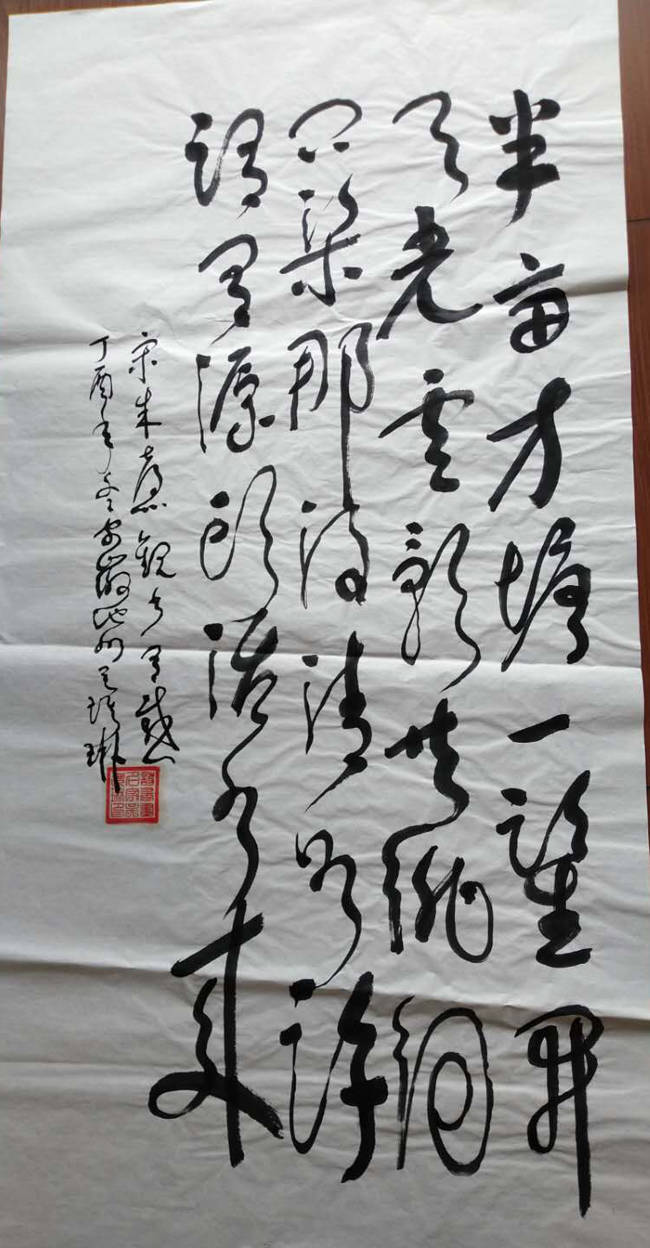 半亩方塘一鉴开
天光云影共徘徊
问渠那得清如许
谓有源头活水来
宋朱熹觀书有感
丁酉年冬安徽池州吴琳